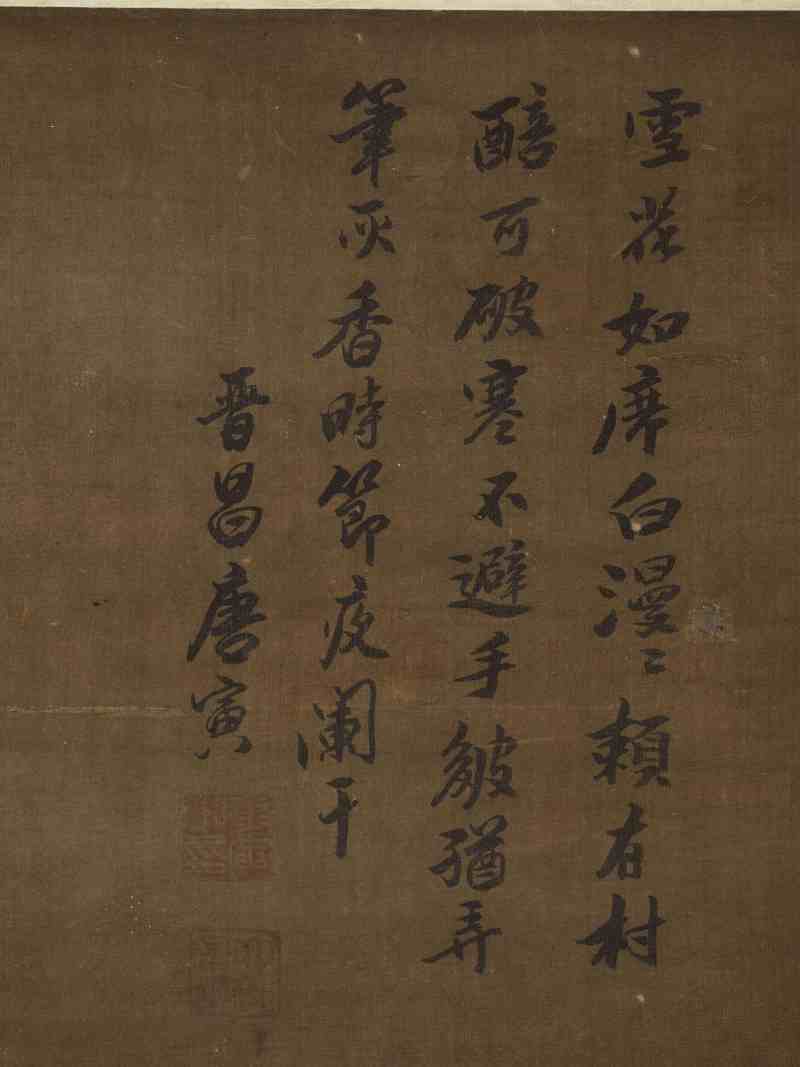 雪花如席白漫〻賴有村
醅可破寒不避手皴猶弄
筆灰香時節夜闌干
晉昌唐寅